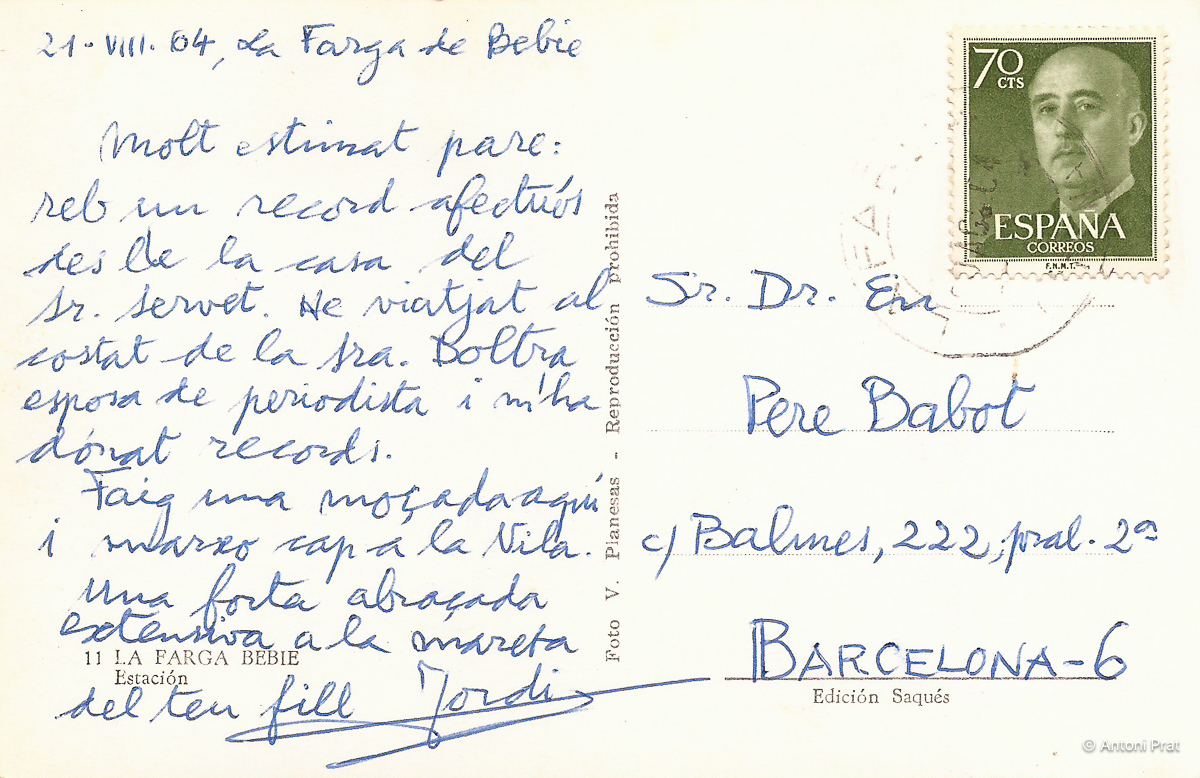 21-VIII-64, La Farga de Bebie
Molt estimat pare:
reb un record afectuós
des de la casa del
Sr. Servet. He viatjat al
costat de la Sra. Boltra
esposa de periodista i m'ha
dónat records.
Faig una moçada aquí
i marxo cap a la Vila.
Una forta abraçada
extensiva a la mareta
del teu fill Jordi
11 LA FARGA BEBIE
Estación
Foto V. Planesas - Reproducción prohibida
70
CTS
ESPAÑA
CORREOS
F.N.M.T.
Sr. Dr. En
Pere Babot
c/ Balmes, 222, pral. 2ª
BARCELONA-6
Edición Saqués
© Antoni Prat